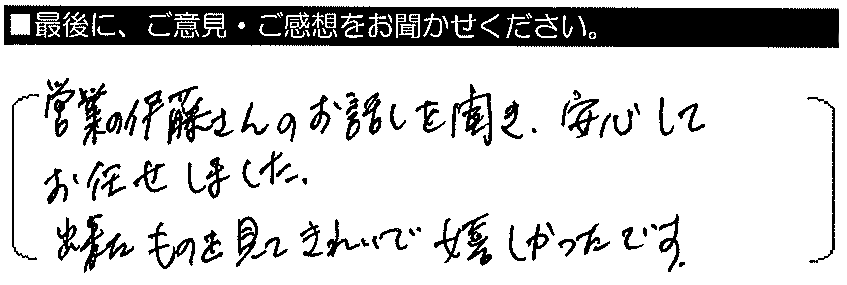 ■最後に、ご意見・ご感想をお聞かせください。
営業の伊藤さんのお話しを聞き、安心して
お任せしました。
出来たものを見てきれいで嬉しかったです。